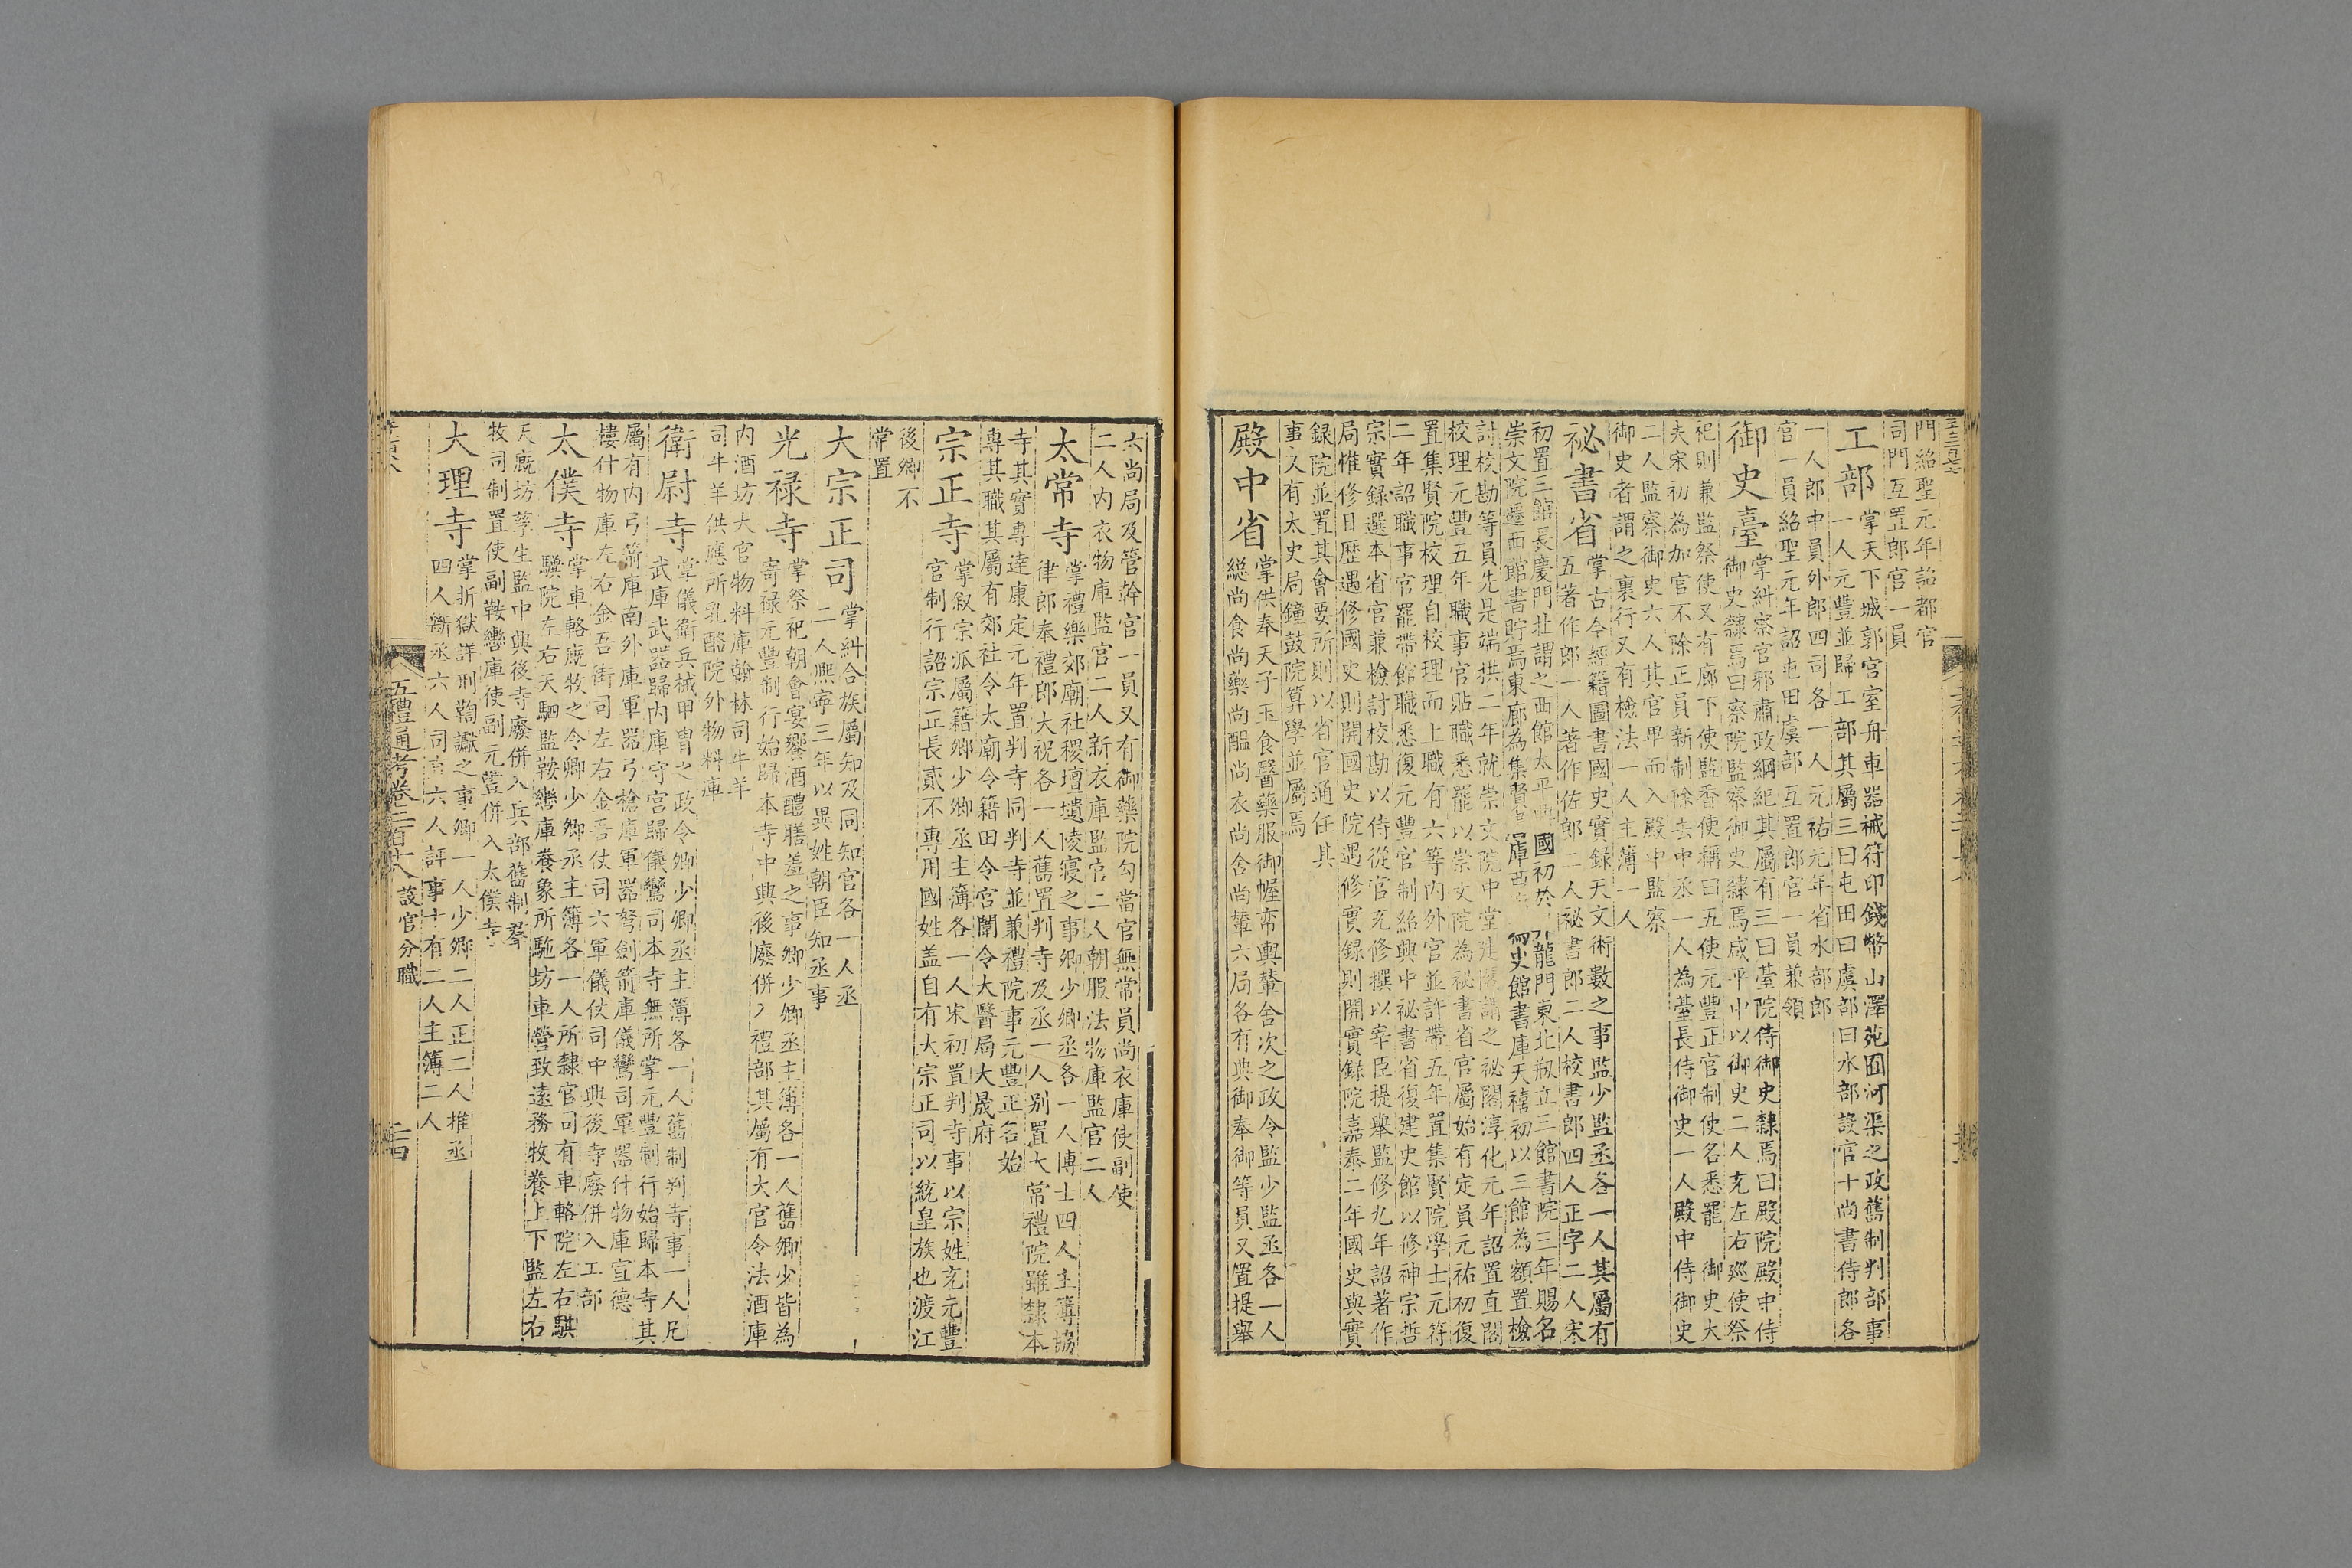 門紹聖元年詔都官
司門互置郎官一員
工部
掌天下城郭宮室舟車器械符印錢幣山澤苑囿河渠之政舊制判部事
一人元豐並歸工部其屬三曰屯田曰虞部曰水部設官十尚書侍郎各
一人郎中員外郎四司各一人元祐元年省水部郎
官一員紹聖元年詔屯田虞部互置郎官一員兼領
御史臺
掌糾察官邪肅政綱紀其屬有三曰臺院侍御史隸焉曰殿院殿中侍
御史隸焉曰察院監察御史隸焉咸平中以御史二人充左右巡使祭
祀則兼監祭使又有廊下使監香使稱曰五使元豐正官制使名悉罷 御史大
夫宋初為加官不除正員新制除去中丞一人為臺長侍御史一人殿中侍御史
二人監察御史六人其官卑而入殿中監察
御史者謂之裏行又有檢法一人主簿一人
祕書省
掌古今經籍圖書國史實録天文術數之事監少監丞各一人其屬有
五著作郎一人著作佐郎二人祕書郎二人校書郎四人正字二人宋
初置三館長慶門北謂之西館太平 國初於 龍門東北 立三館書院三年賜名
崇文院遷西館書貯焉東廊為集賢 庫西 史館書庫天禧初以三館為額置檢
討校勘等員先是端拱二年就崇文院中堂建閣謂之祕閣淳化元年詔置直閣
校理元豐五年職事官貼職悉罷以崇文院為祕書省官屬始有定員元祐初復
置集賢院校理自校理而上職有六等內外官並許帶五年置集賢院學士元符
二年詔職事官罷帶館職悉復元豐官制紹興中祕書省復建史館以修神宗哲
宗實録選本省官兼檢討校勘以侍從官充修撰以宰臣提舉監修九年詔著作
局惟修日歷遇修國史則開國史院遇修實録則開實録院嘉泰二年國史與實
録院並置其會要所則以省官通任其
事又有太史局鐘鼓院算學並屬焉
殿中省
掌供奉天子玉食醫藥服御幄帟輿輦舍次之政令監少監丞各一人
総尚食尚藥尚醞尚衣尚舍尚輦六局各有典御奉御等員又置提舉
六尚局及管幹官一員又有御藥院勾當官無常員尚衣庫使副使
二人内衣物庫監官二人新衣庫監官二人朝服法物庫監官二人
太常寺
掌禮樂郊廟社稷壇壝陵寢之事卿少卿丞各一人博士四人主簿協
律郎奉禮郎大祝各一人舊置判寺及丞一人别置太常禮院雖隸本
寺其實專達康定元年置判寺同判寺並兼禮院事元豐正名始
專其職其屬有郊社令太廟令籍田令宮闈令大醫局大晟府
宗正寺
掌敘宗派屬籍卿少卿丞主簿各一人宋初置判寺事以宗姓充元豐
官制行詔宗正長貳不專用國姓盖自有大宗正司以統皇族也渡江
後卿不
常置
大宗正司
掌糾合族屬知及同知官各一人丞
二人熈寧三年以異姓朝臣知丞事
光禄寺
掌祭祀朝會宴饗酒醴膳羞之事卿少卿丞主簿各一人舊卿少皆為
寄禄元豐制行始歸本寺中興後廢併入禮部其屬有大官令法酒庫
内酒坊大官物料庫翰林司牛羊
司牛羊供應所乳酪院外物料庫
衛尉寺
掌儀衛兵械甲胄之政令卿少卿丞主簿各一人舊制判寺事一人凡
武庫武器歸内庫守宮歸儀鸞司本寺無所掌元豐制行始歸本寺其
屬有内弓箭庫南外庫軍器弓槍庫軍器弩劍箭庫儀鸞司軍器什物庫宣德
樓什物庫左右金吾街司左右金吾仗司六軍儀仗司中興後寺廢併入工部
太僕寺
掌車輅廐牧之令卿少卿丞主簿各一人所隸官司有車輅院左右騏
驥院左右天駟監鞍轡庫養象所駞坊車營致遠務牧養上下監左右
天廐坊孳生監中興後寺廢併入兵部舊制羣
牧司制置使副鞍轡庫使副元豐併入太僕寺
大理寺
掌折獄詳刑鞫讞之事卿一人少卿二人正二人推丞
四人斷丞六人司直六人評事十有二人主簿二人
五禮通考卷二百十八 設官分職